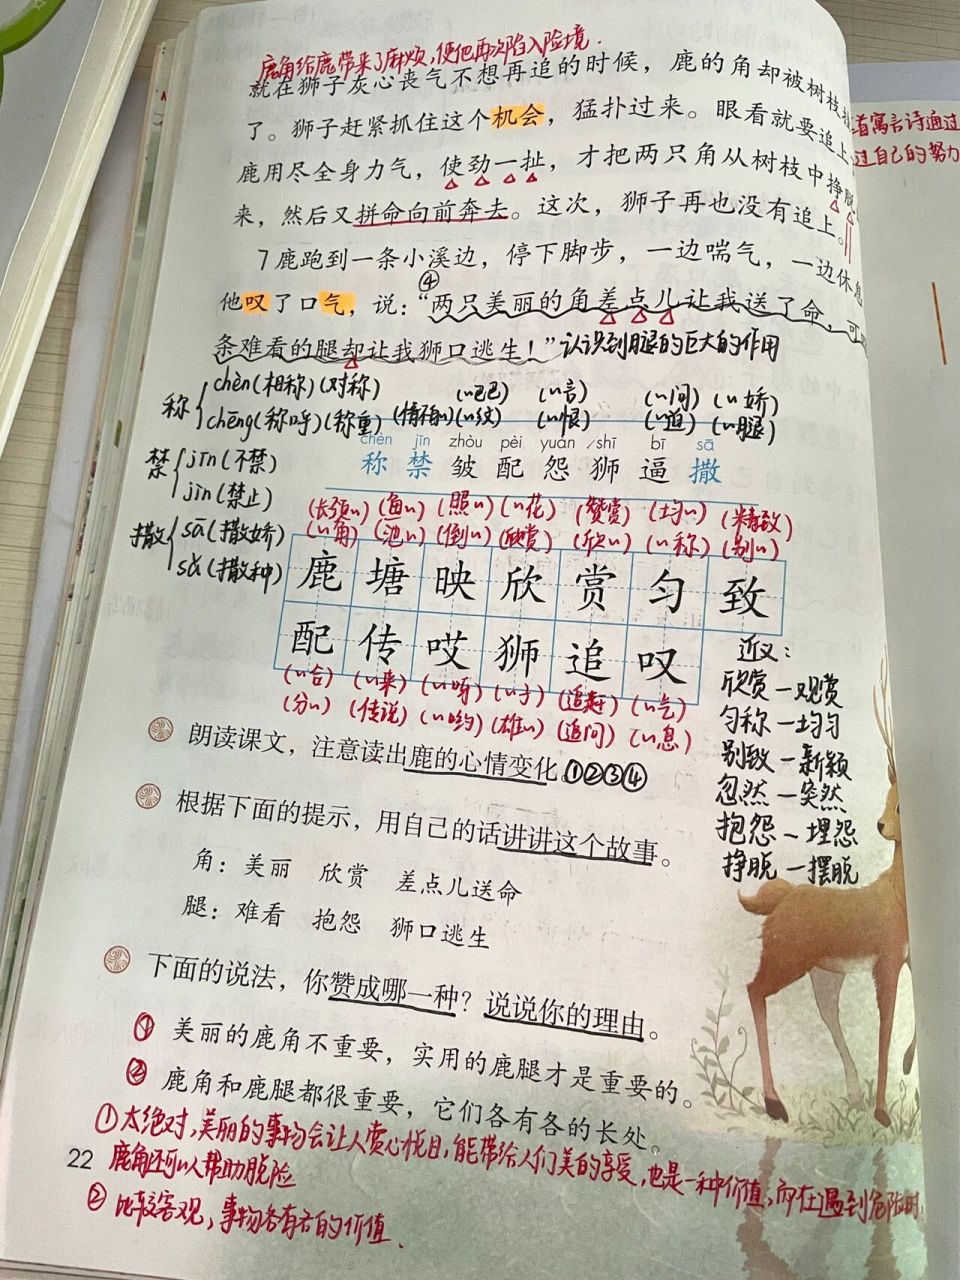 鹿角给鹿带来了麻烦,使他再次陷入险境.
就在狮子灰心丧气不想再追的时候，鹿的角却被树枝挂
了。狮子赶紧抓住这个机会，猛扑过来。眼看就要追上
首寓言诗通过
鹿用尽全身力气，使劲一扯，才把两只角从树枝中挣脱
过自己的努力
来，然后又拼命向前奔去。这次，狮子再也没有追上。
7 鹿跑到一条小溪边，停下脚步，一边喘气，一边休息
④
他叹了口气，说：“两只美丽的角差点儿让我送了命，可
条难看的腿却让我狮口逃生！”认识到腿的巨大的作用
称 chèn(相称)(对称) (〃巴巴) (〃言) (〃问) (〃娇)
chēng(称呼)(称重) (情不自〃)(〃纹) (〃恨) (〃迫) (〃腿)
chèn jīn zhòu pèi yuàn shī bī sā
称 禁 皱 配 怨 狮 逼 撒
禁 jīn(不禁)
jìn(禁止)
撒 sā(撒娇)
sǎ(撒种)
(长颈〃) (鱼〃) (照〃) (〃花) (赞赏) (均〃) (精致)
(〃角) (池〃) (倒〃) (欣赏) (欣〃) (〃称) (别〃)
鹿 塘 映 欣 赏 匀 致
配 传 哎 狮 追 叹
(〃合) (〃来) (〃呀) (〃子) (追赶) (〃气)
(分〃) (传说) (〃哟) (雄〃) (追问) (〃息)
近义：
欣赏—观赏
匀称—均匀
别致—新颖
忽然—突然
抱怨—埋怨
挣脱—摆脱
朗读课文，注意读出鹿的心情变化①②③④
根据下面的提示，用自己的话讲讲这个故事。
角：美丽 欣赏 差点儿送命
腿：难看 抱怨 狮口逃生
下面的说法，你赞成哪一种？说说你的理由。
① 美丽的鹿角不重要，实用的鹿腿才是重要的。
② 鹿角和鹿腿都很重要，它们各有各的长处。
①太绝对,美丽的事物会让人赏心悦目,能带给人们美的享受,也是一种价值,而在遇到危险时,
22
鹿角还可以帮助脱险
② 比较客观,事物各有各的价值.